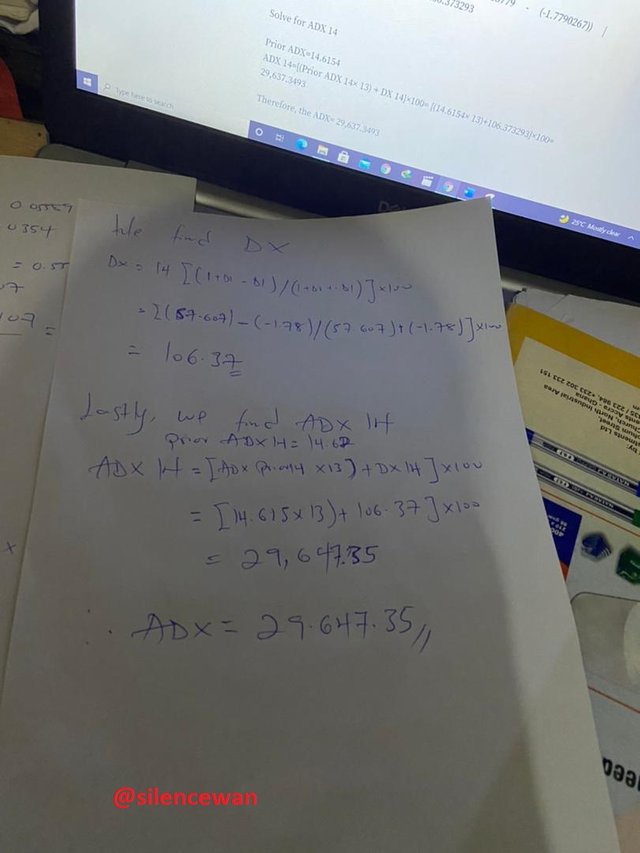 (-1.7790267)) /
Solve for ADX 14
Prior ADX=14.6154
ADX 14=[(Prior ADX 14× 13) + DX 14]×100= [(14.6154× 13)+106.373293]×100=
29,637.3493
Therefore, the ADX= 29,637.3493
Type here to search
25°C Mostly clear
0354
We find DX
Dx = 14 [(1+DI - DI)/(1+DI+-DI)]×100
= [(57.607) - (-1.78)/(57.607)+(-1.78)]×100
= 106.37
Lastly, we find ADX 14
prior ADX 14 = 14.62
ADX 14 = [ADX (Prior14 ×13) + DX 14] ×100
= [14.615×13)+ 106.37]×100
= 29,647.35
∴ ADX = 29.647.35
@silencewan